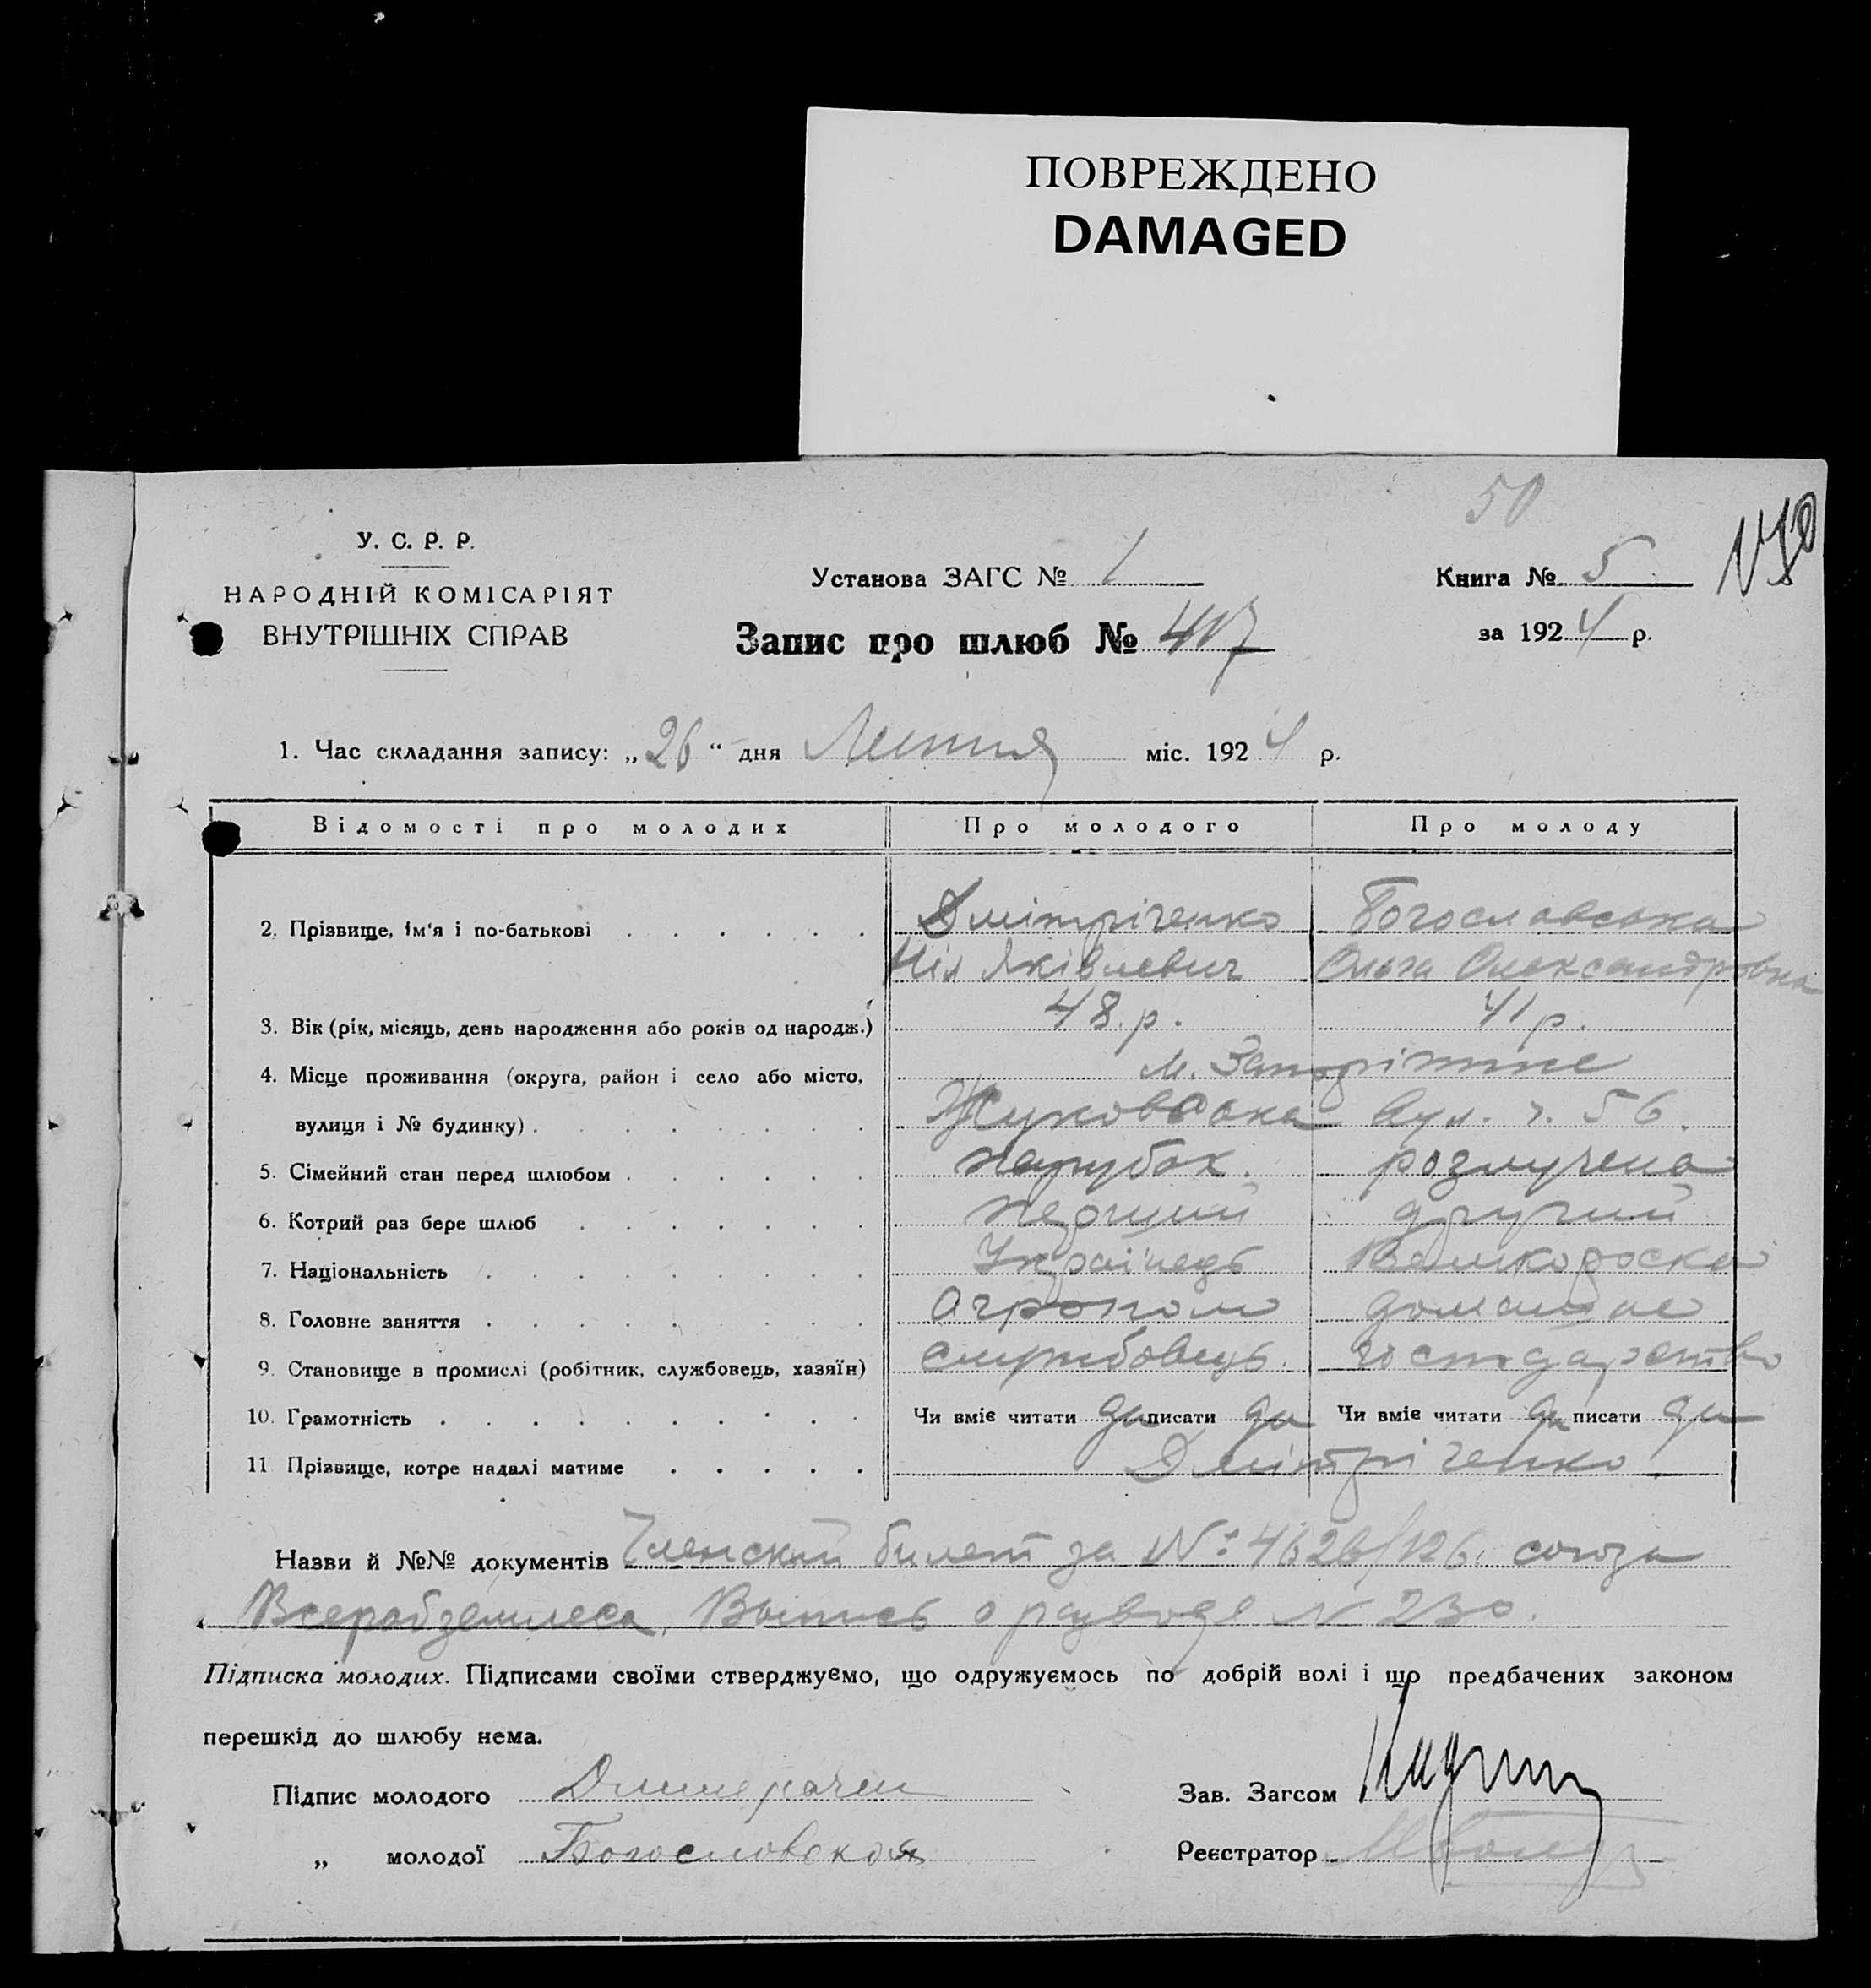 ПОВРЕЖДЕНО
DAMAGED
50
У. С. Р. Р.
НАРОДНІЙ КОМІСАРІЯТ
ВНУТРІШНІХ СПРАВ
Установа ЗАГС № 1
Книга № 5
Запис про шлюб № 417
за 1924 р.
1. Час складання запису: „26“ дня Липня міс. 1924 р.
Відомості про молодих Про молодого Про молоду
2. Прізвище, ім'я і по-батькові Дмітріченко Богословська
Ніл Яківлевич Ольга Олександровна
3. Вік (рік, місяць, день народження або років од народж.) 48 р. 41 р.
4. Місце проживання (округа, район і село або місто, м. Запоріжжє
вулиця і № будинку) Жуковська вул. ч. 56.
5. Сімейний стан перед шлюбом парубок. розлучена
6. Котрий раз бере шлюб перший другий
7. Національність Українець Великороска
8. Головне заняття Агроном домашнє
9. Становище в промислі (робітник, службовець, хазяїн) службовець. господарство
10. Грамотність Чи вміє читати да писати да Чи вміє читати да писати да
11 Прізвище, котре надалі матиме Дмітріченко
Назви й №№ документів Членский билет за № 4626/126 союза
Всеработземлеса, Выпись о разводе N 230.
Підписка молодих. Підписами своїми стверджуємо, що одружуємось по добрій волі і що предбачених законом
перешкід до шлюбу нема.
Підпис молодого Зав. Загсом
„ молодої Богословская Реєстратор